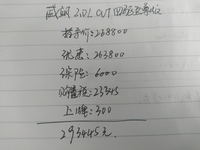 威朗 2.0L CVT 四驱至尊版
指导价:268800
优惠:263800
保险:6000
购置税:23345
上牌:300
293445元.